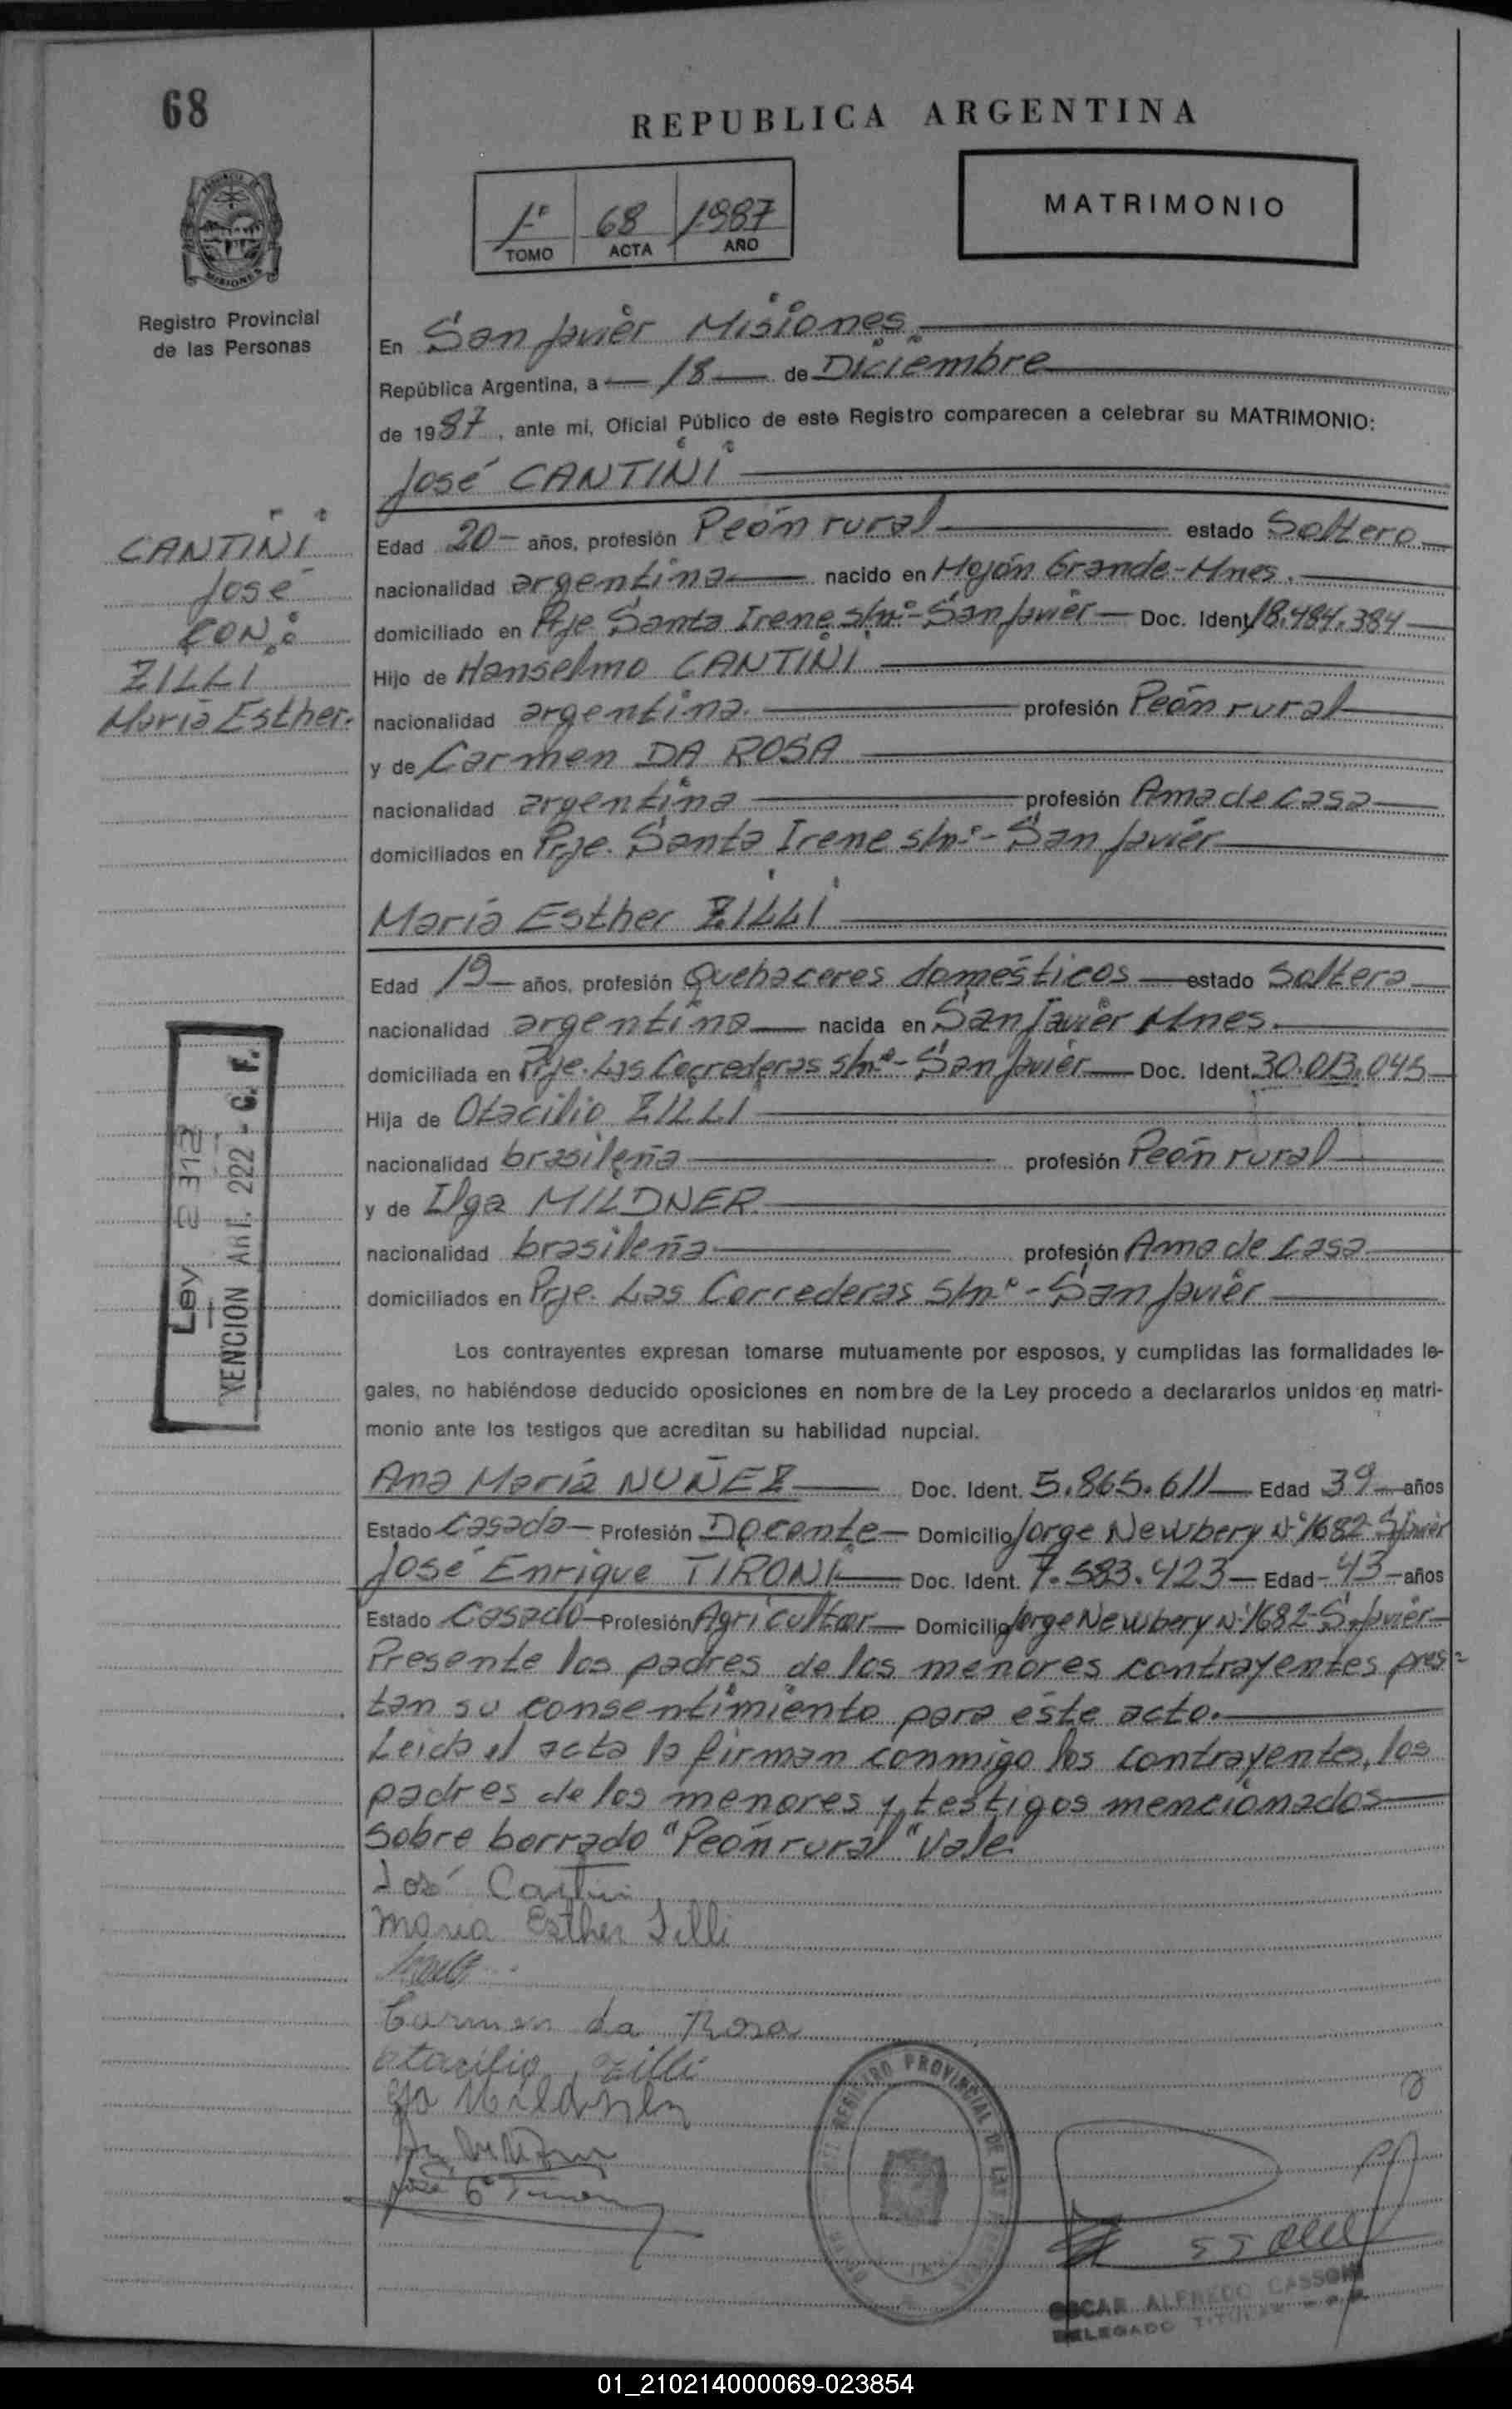 68
REPUBLICA ARGENTINA
1º 68 1987
TOMO ACTA AÑO
MATRIMONIO
PROVINCIA DE
MISIONES
Registro Provincial
de las Personas
En San Javier Misiones
República Argentina, a 18 de Diciembre
de 1987, ante mí, Oficial Público de este Registro comparecen a celebrar su MATRIMONIO:
José CANTINI
CANTINI
José
CON
ZILLI
María Esther.
Edad 20 - años, profesión Peón rural estado Soltero
nacionalidad argentina nacido en Mojón Grande - Mnes.
domiciliado en Pje. Santa Irene s/nº - San Javier Doc. Ident. 18.484.384
Hijo de Hanselmo CANTINI
nacionalidad argentina. profesión Peón rural
y de Carmen DA ROSA
nacionalidad argentina profesión Ama de casa
domiciliados en Prje. Santa Irene s/nº - San Javier
María Esther ZILLI
Edad 19 años, profesión Quehaceres domésticos estado Soltera
nacionalidad argentina nacida en San Javier Mnes.
domiciliada en Prje. Las Correderas s/nº - San Javier Doc. Ident. 30.013.045
Hija de Otacilio ZILLI
nacionalidad brasileña profesión Peón rural
y de Ilga MILDNER
nacionalidad brasileña profesión Ama de casa
domiciliados en Prje. Las Correderas s/nº - San Javier
Ley 2312
XENCION Art. 222 - C. F.
Los contrayentes expresan tomarse mutuamente por esposos, y cumplidas las formalidades le-
gales, no habiéndose deducido oposiciones en nombre de la Ley procedo a declararlos unidos en matri-
monio ante los testigos que acreditan su habilidad nupcial.
Ana María NUÑEZ Doc. Ident. 5.865.611 Edad 39 años
Estado Casada Profesión Docente Domicilio Jorge Newbery Nº 1682 S. Javier
José Enrique TIRONI Doc. Ident. 7.583.423 Edad 43 años
Estado Casado Profesión Agricultor Domicilio Jorge Newbery Nº 1682 - S. Javier
Presente los padres de los menores contrayentes pres=
tan su consentimiento para éste acto.
Leida el acta la firman conmigo los contrayentes, los
padres de los menores y testigos mencionados
Sobre borrado "Peón rural" Vale
José Cantini
Maria Esther Zilli
Carmen da Rosa
Otacilio Zilli
REGISTRO PROVINCIAL DE LAS
OSCAR ALFREDO CASSONI
DELEGADO TITULAR
01_210214000069-023854